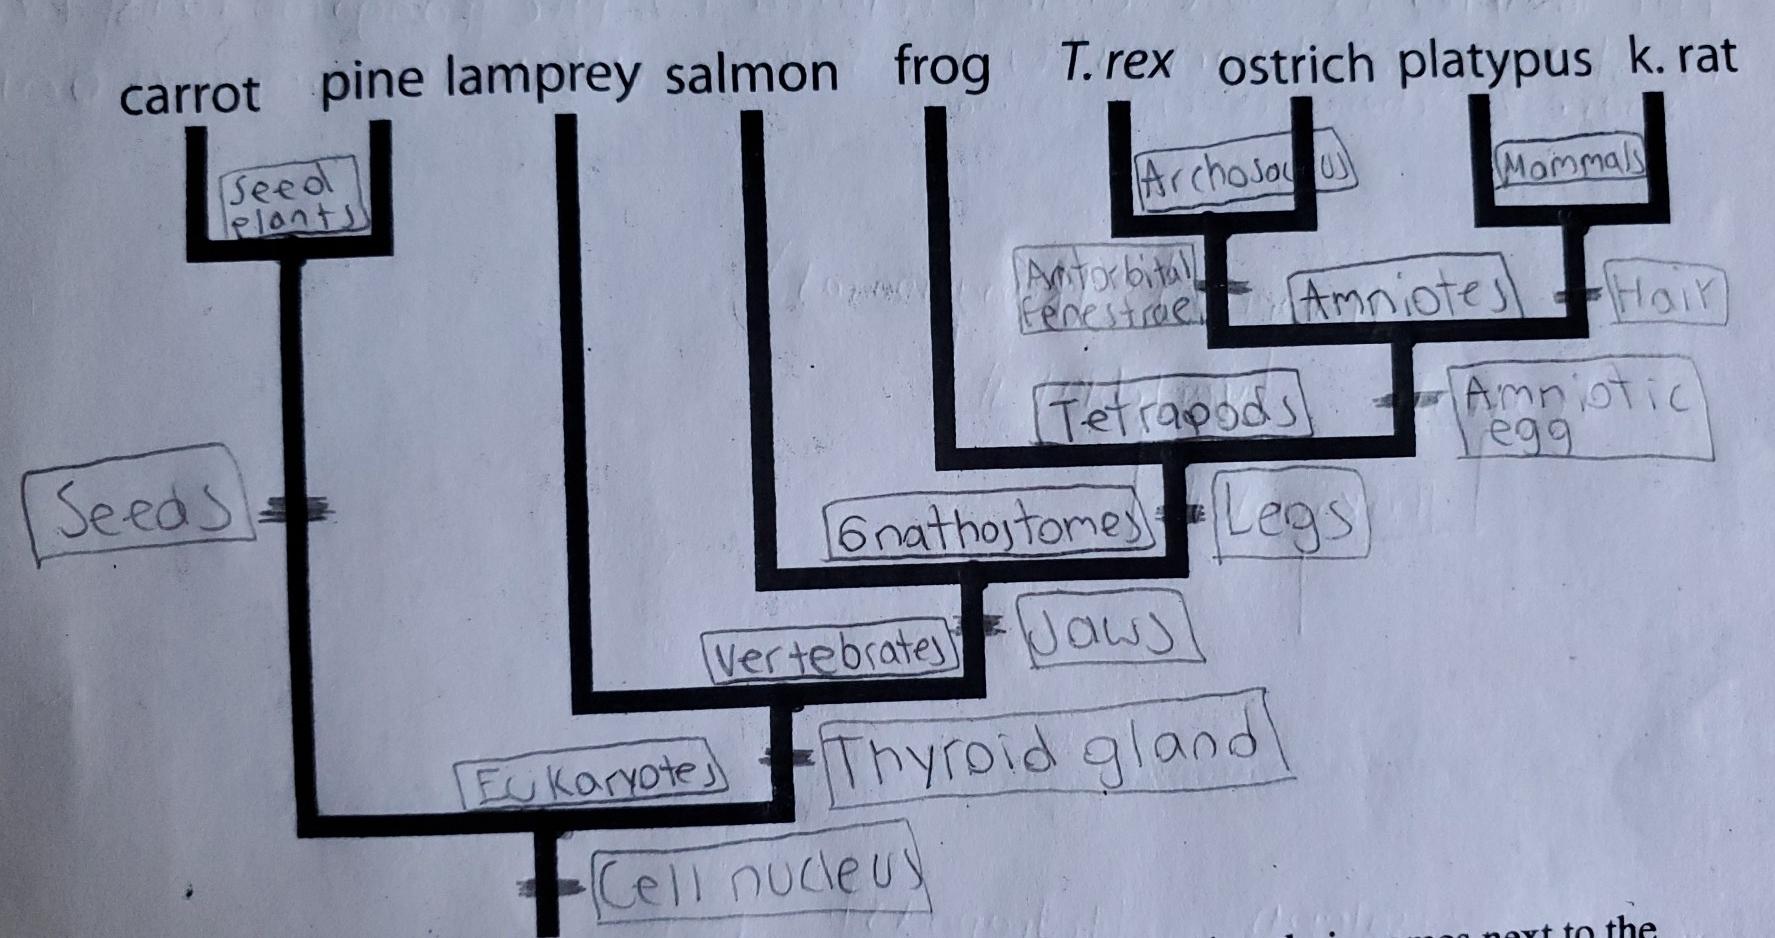 carrot pine lamprey salmon frog T. rex ostrich platypus k. rat
Seed
plants
Mammals
Antorbital
Fenestrae
Amniotes
Hair
Tetrapods
Amniotic
egg
Seeds
Gnathostomes
Legs
Vertebrates
Jaws
Eukaryotes
Thyroid gland
Cell nucleus
next to the